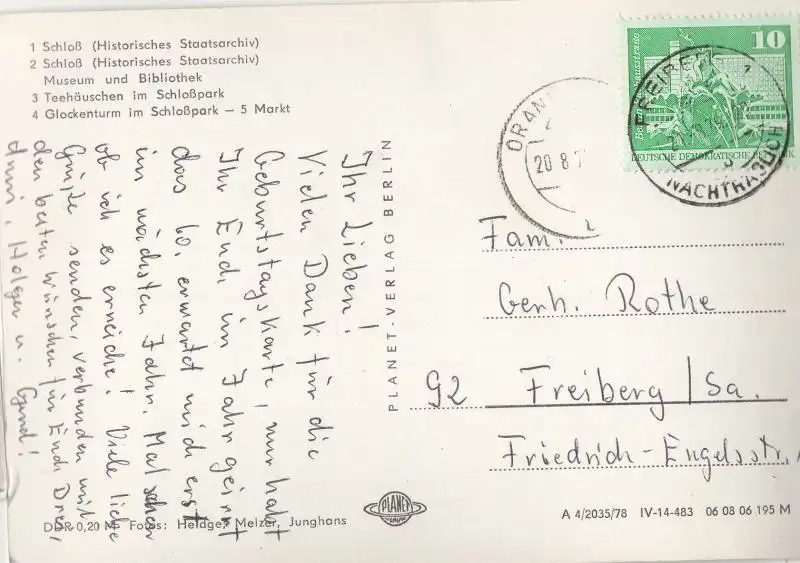 1 Schloß (Historisches Staatsarchiv)
2 Schloß (Historisches Staatsarchiv)
Museum und Bibliothek
3 Teehäuschen im Schloßpark
4 Glockenturm im Schloßpark – 5 Markt
Ihr Lieben!
Vielen Dank für die
Geburtstagskarte, nur habt
Ihr Euch im Jahr geirrt
das 60. erwartet mich erst
im nächsten Jahr. Mal sehen
ob ich es erreiche! Viele liebe
Grüße senden, verbunden mit
den besten Wünschen für Euch Drei,
Holger u. Gerd!
PLANET-VERLAG BERLIN
10
DEUTSCHE DEMOKRATISCHE
20 8 7
NACHTRÄGLICH
Fam.
Gerh. Rothe
92 Freiberg/Sa.
Friedrich-Engelsstr.
DDR 0,20 M Fotos: Heldge, Melzer, Junghans
PLANET
VERLAG
A 4/2035/78 IV-14-483 06 08 06 195 M